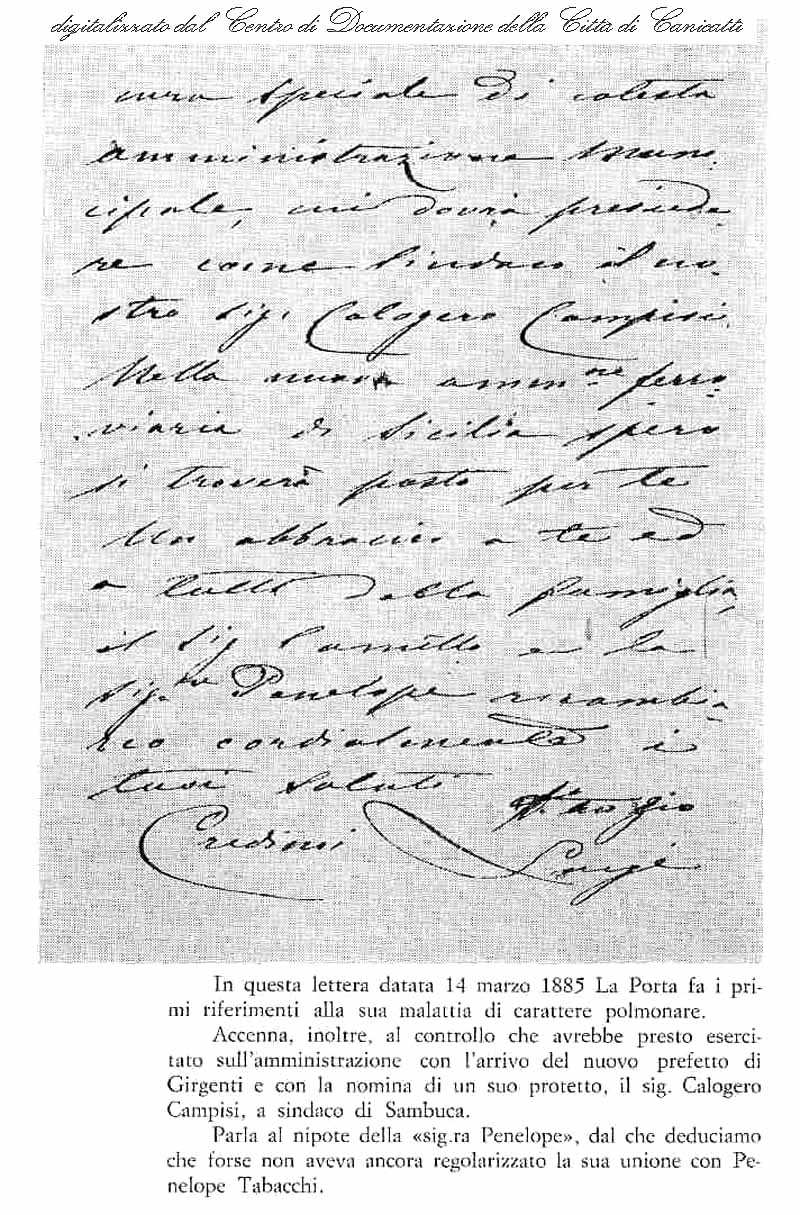 digitalizzato dal Centro di Documentazione della Città di Canicattì
cura speciale di cotesta
amministrazione muni-
cipale, cui dovrà presiede-
re come Sindaco il no-
stro Sig. Calogero Campisi.
Nella nuova ammne ferro-
viaria di Sicilia spero
si troverà posto per te
Un abbraccio a te ed
a tutti della famiglia,
il Sig. Camillo e la
Sig.ra Penelope ricambia-
no cordialmente i
tuoi saluti
Credimi
zio
Luigi
In questa lettera datata 14 marzo 1885 La Porta fa i pri-
mi riferimenti alla sua malattia di carattere polmonare.
Accenna, inoltre, al controllo che avrebbe presto eserci-
tato sull'amministrazione con l'arrivo del nuovo prefetto di
Girgenti e con la nomina di un suo protetto, il sig. Calogero
Campisi, a sindaco di Sambuca.
Parla al nipote della «sig.ra Penelope», dal che deduciamo
che forse non aveva ancora regolarizzato la sua unione con Pe-
nelope Tabacchi.